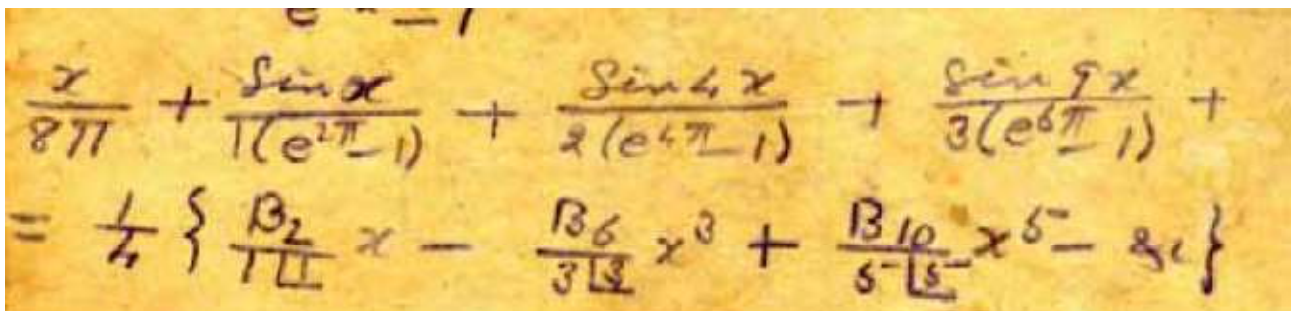 e - 1
x/8π + Sin x/1(e^{2π} - 1) + Sin 4x/2(e^{4π} - 1) + Sin 9x/3(e^{6π} - 1) +
= 1/4 { B_2/1⌊1 x - B_6/3⌊3 x^3 + B_10/5⌊5 x^5 - &c }